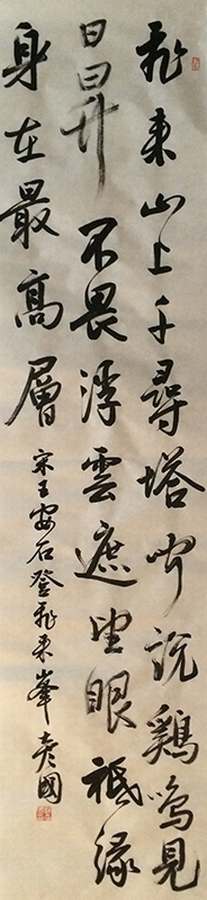 飛来山上千尋塔聞說鷄鳴見
日昇不畏浮雲遮望眼祗緣
身在最高層
宋王安石登飛来峯